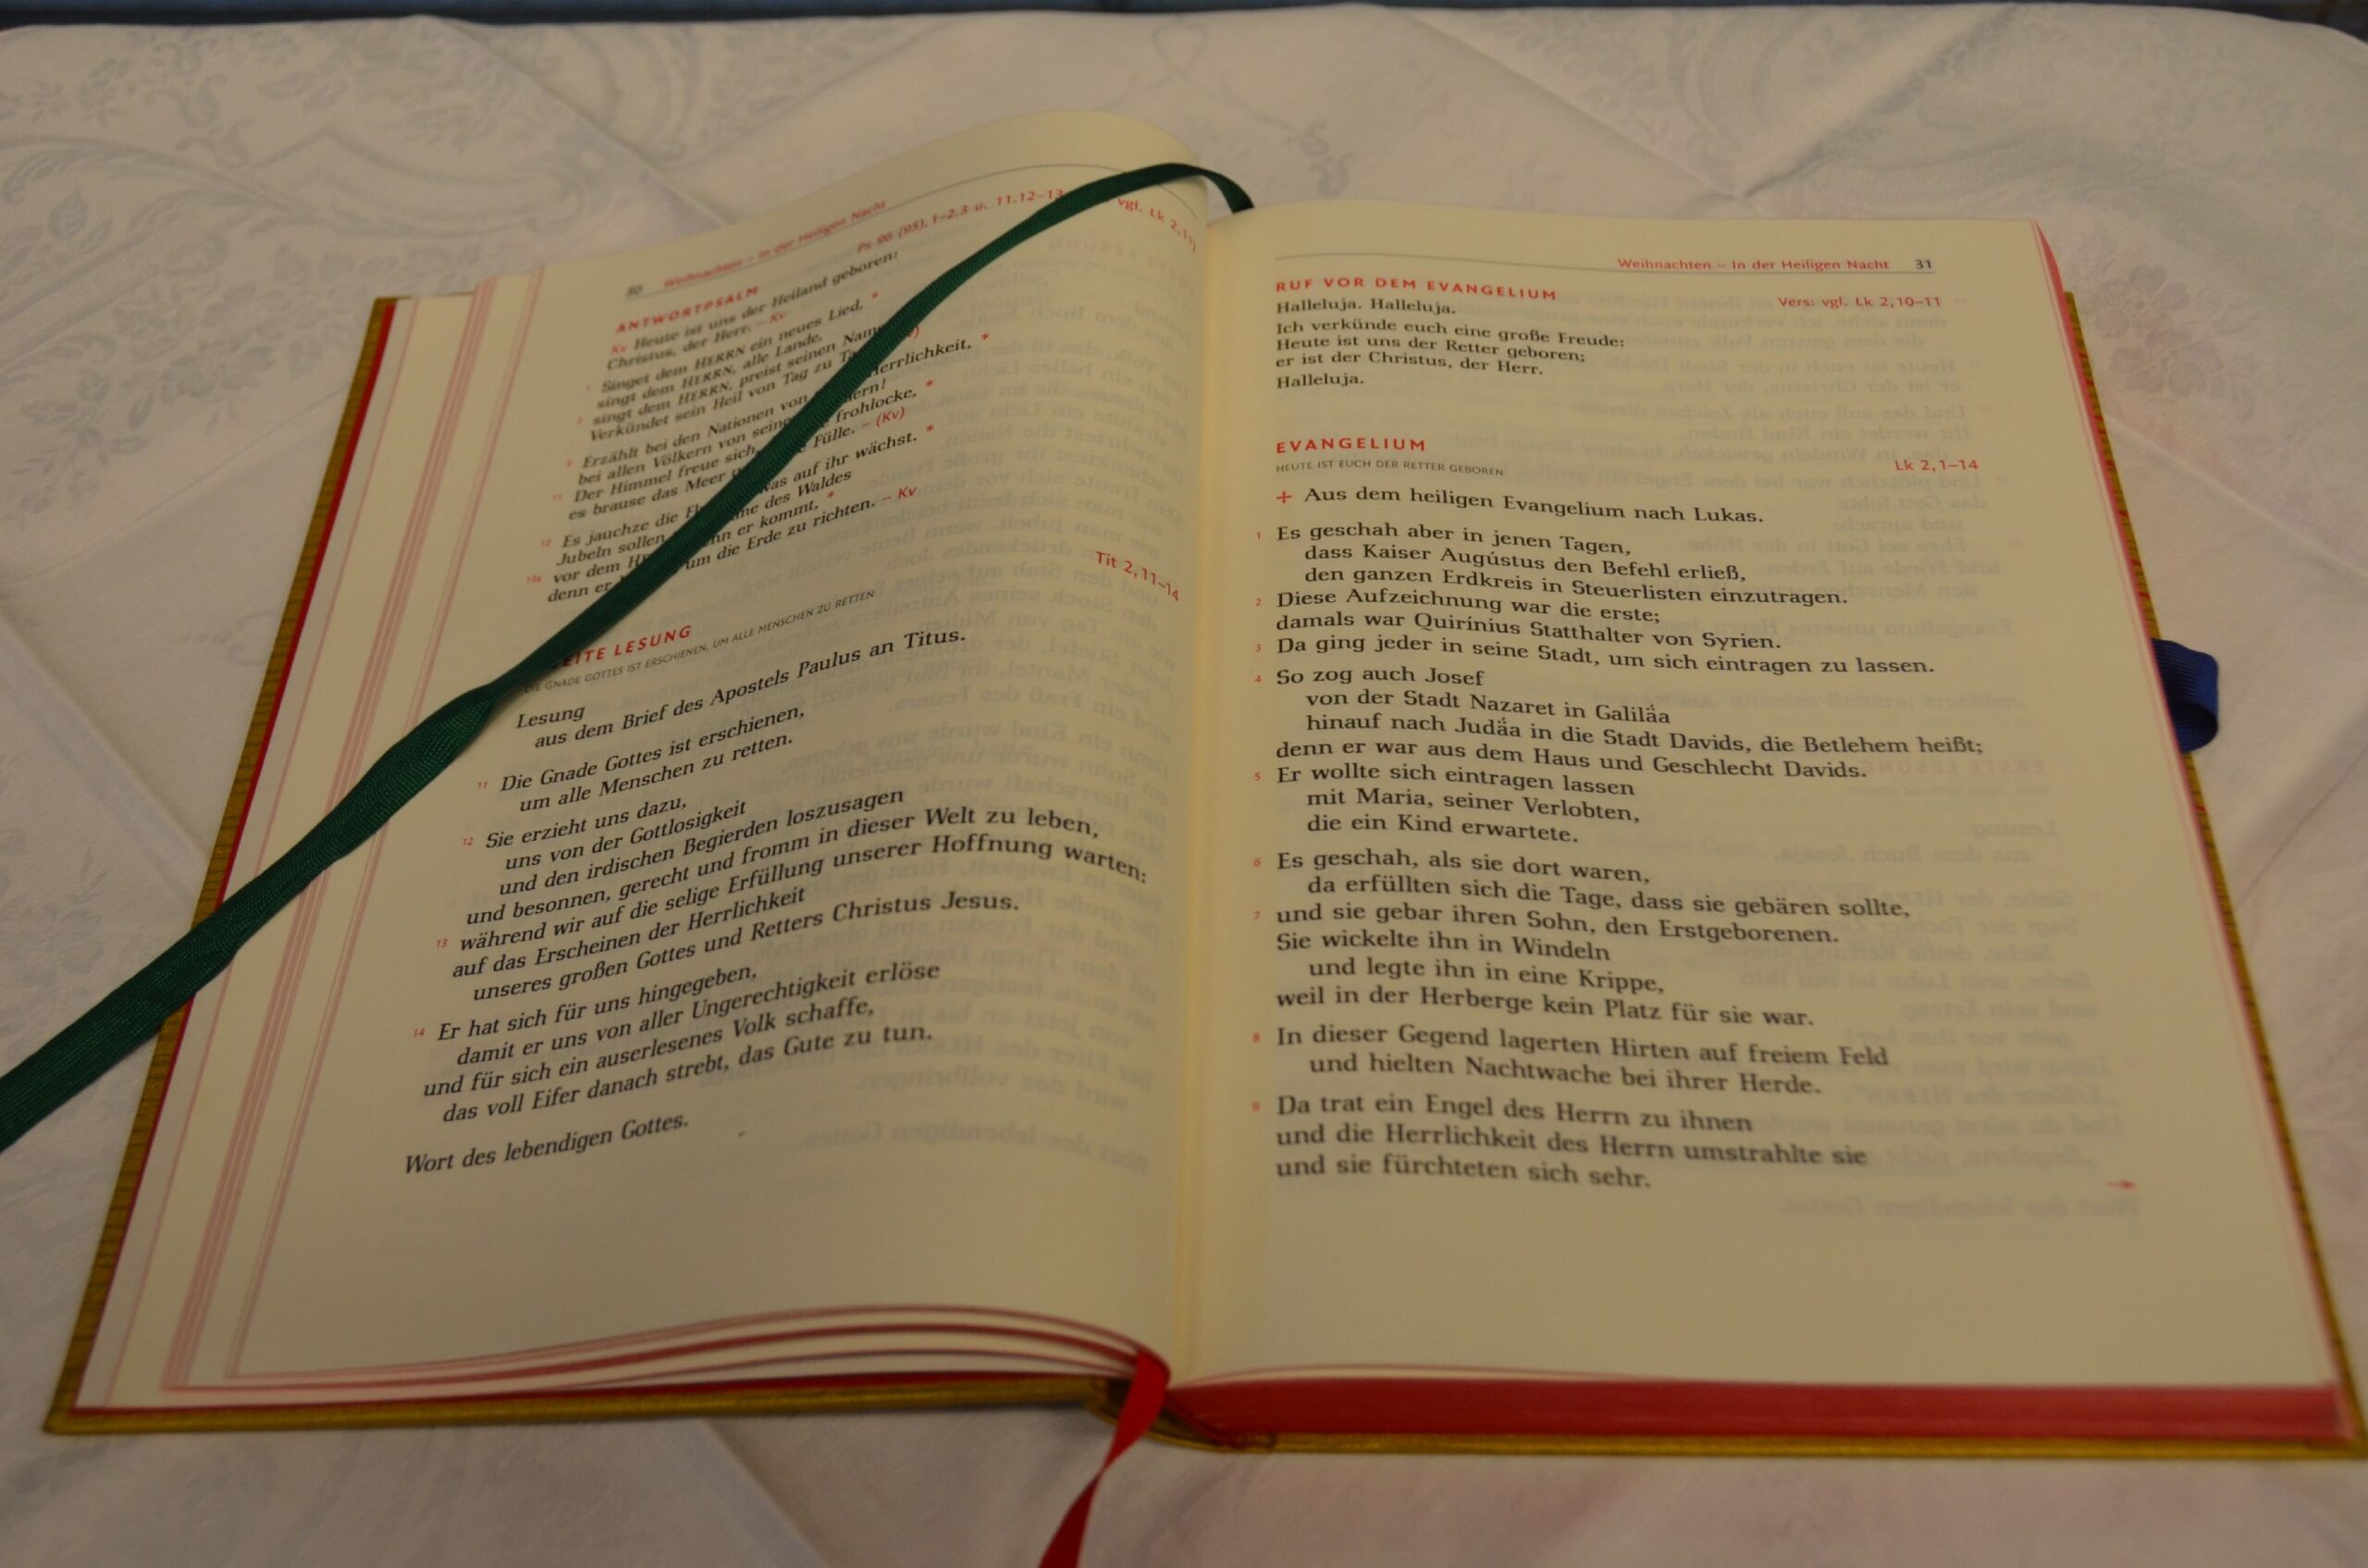 30 Weihnachten – In der Heiligen Nacht
ANTWORTPSALM Ps 96 (95), 1–2.3 u. 11.12–13 vgl. Lk 2,11)
Kv Heute ist uns der Heiland geboren:
Christus, der Herr. – Kv
1 Singet dem HERRN ein neues Lied, *
singt dem HERRN, alle Lande,
2 singt dem HERRN, preist seinen
Verkündet sein Heil von Tag zu
3 Erzählt bei den Nationen von Herrlichkeit, *
bei allen Völkern von
11 Der Himmel freue sich, frohlocke, *
es brause das Meer Fülle. – (Kv)
12 Es jauchze die was auf ihr wächst. *
Jubeln sollen des Waldes
13a vor dem er kommt, *
denn er um die Erde zu richten. – Kv
LESUNG Tit 2, 11–14
DIE GNADE GOTTES IST ERSCHIENEN, UM ALLE MENSCHEN ZU RETTEN
Lesung
aus dem Brief des Apostels Paulus an Titus.
11 Die Gnade Gottes ist erschienen,
um alle Menschen zu retten.
12 Sie erzieht uns dazu,
uns von der Gottlosigkeit
und den irdischen Begierden loszusagen
und besonnen, gerecht und fromm in dieser Welt zu leben,
13 während wir auf die selige Erfüllung unserer Hoffnung warten:
auf das Erscheinen der Herrlichkeit
unseres großen Gottes und Retters Christus Jesus.
14 Er hat sich für uns hingegeben,
damit er uns von aller Ungerechtigkeit erlöse
und für sich ein auserlesenes Volk schaffe,
das voll Eifer danach strebt, das Gute zu tun.
Wort des lebendigen Gottes.
Weihnachten – In der Heiligen Nacht 31
RUF VOR DEM EVANGELIUM Vers: vgl. Lk 2, 10–11
Halleluja. Halleluja.
Ich verkünde euch eine große Freude:
Heute ist uns der Retter geboren;
er ist der Christus, der Herr.
Halleluja.
EVANGELIUM Lk 2, 1–14
HEUTE IST EUCH DER RETTER GEBOREN
+ Aus dem heiligen Evangelium nach Lukas.
1 Es geschah aber in jenen Tagen,
dass Kaiser Augústus den Befehl erließ,
den ganzen Erdkreis in Steuerlisten einzutragen.
2 Diese Aufzeichnung war die erste;
damals war Quirínius Statthalter von Syrien.
3 Da ging jeder in seine Stadt, um sich eintragen zu lassen.
4 So zog auch Josef
von der Stadt Nazaret in Galiläa
hinauf nach Judäa in die Stadt Davids, die Betlehem heißt;
denn er war aus dem Haus und Geschlecht Davids.
5 Er wollte sich eintragen lassen
mit Maria, seiner Verlobten,
die ein Kind erwartete.
6 Es geschah, als sie dort waren,
da erfüllten sich die Tage, dass sie gebären sollte,
7 und sie gebar ihren Sohn, den Erstgeborenen.
Sie wickelte ihn in Windeln
und legte ihn in eine Krippe,
weil in der Herberge kein Platz für sie war.
8 In dieser Gegend lagerten Hirten auf freiem Feld
und hielten Nachtwache bei ihrer Herde.
9 Da trat ein Engel des Herrn zu ihnen
und die Herrlichkeit des Herrn umstrahlte sie
und sie fürchteten sich sehr.